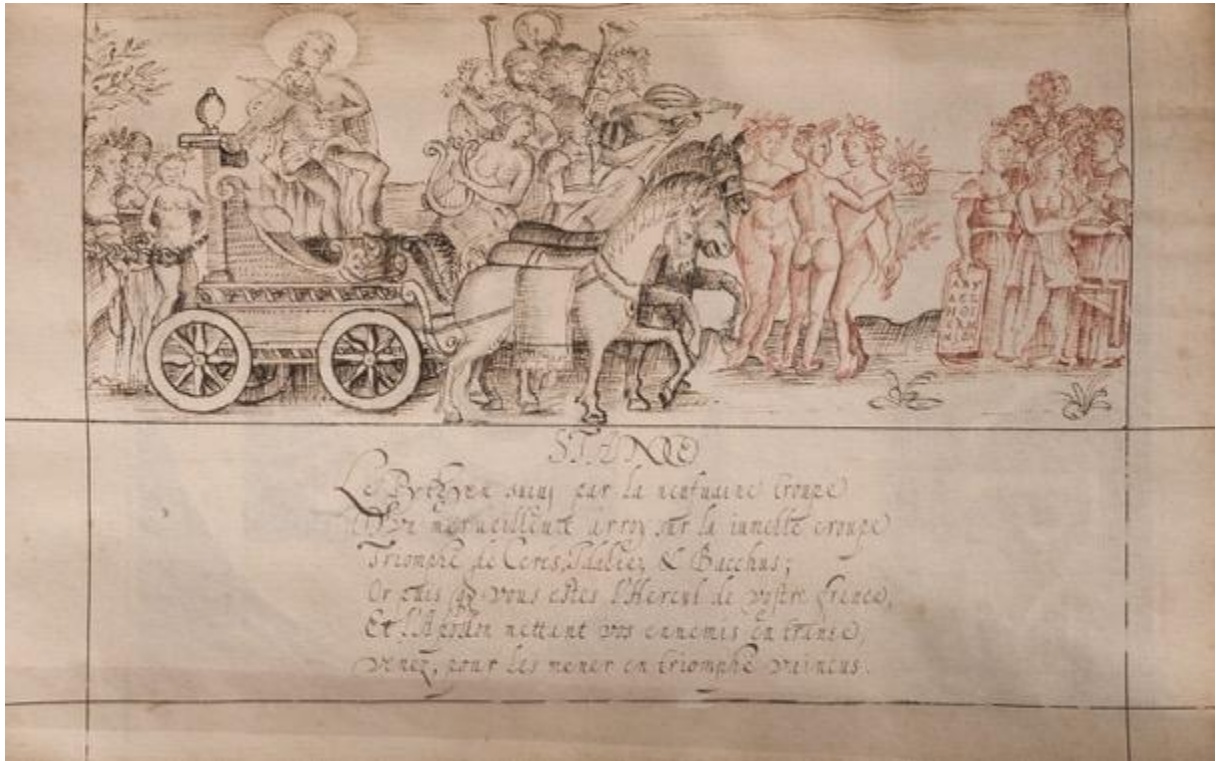 STANCE
Le Pythyen suivy par la neufuaine troupe
merueilleux arroy sur la iumelle croupe
Triomphe de Ceres, Idalie, & Bacchus;
Or puis vous estes l'Hercul de vostre france,
Et l'Apollon mettant vos ennemis en transe,
venez, pour les mener en triomphe vaincus.